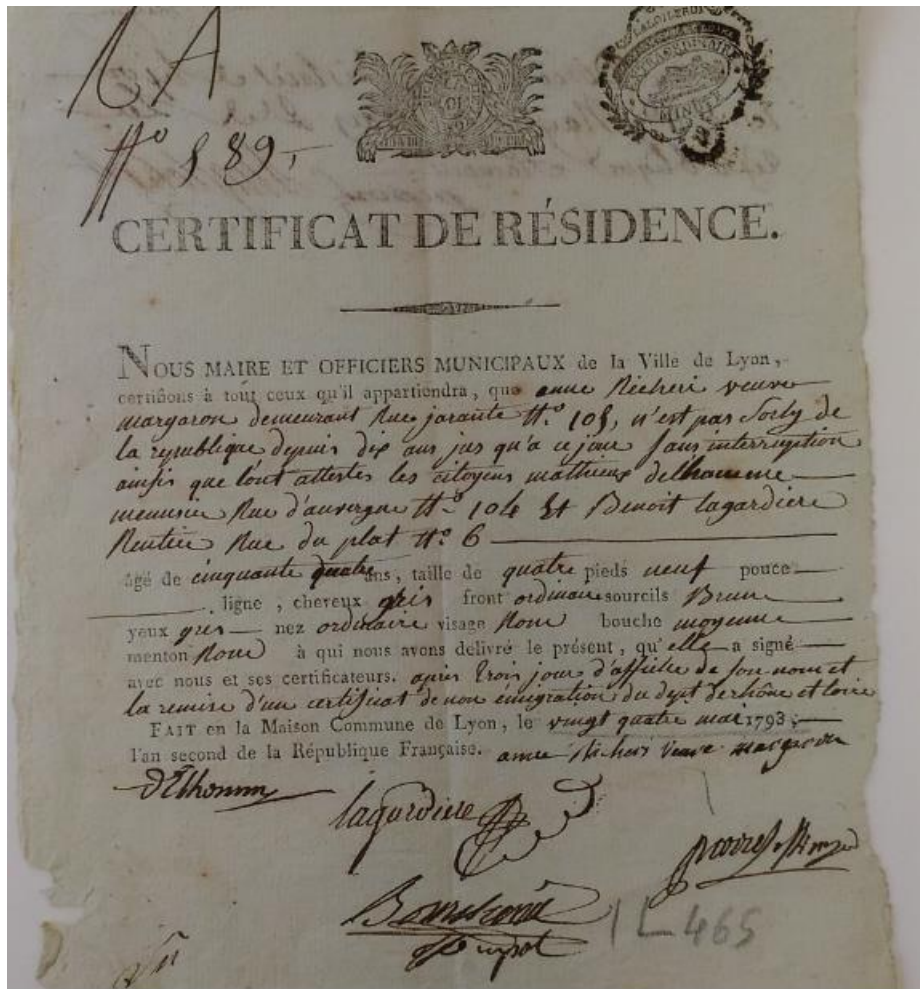 1 A
N° 889.
EXTRAORDINAIRE
MINUTE
CERTIFICAT DE RÉSIDENCE.
NOUS MAIRE ET OFFICIERS MUNICIPAUX de la Ville de Lyon,
certifions à tout ceux qu'il appartiendra, que anne Richeri veuve
margaron demeurant Rue jarante N° 105, n'est pas Sorty de
la republique depuis dix ans jus qu'a ce jour Sans interruption
ainsi que l'ont attestes les citoyens mathieu delhomme
menuisier Rue d'auvergne N° 104 Et Benoit lagardiere
Rentier Rue du plat N° 6
âgé de cinquante quatre ans, taille de quatre pieds neuf pouce
ligne, cheveux gris front ordinaire sourcils Brun
yeux gris nez ordinaire visage Rond bouche moyenne
menton Rond à qui nous avons délivré le présent, qu'elle a signé
avec nous et ses certificateurs. apres trois jour d'affiche de son nom et
la remise d'un certificat de non émigration du dept de rhône et loire
FAIT en la Maison Commune de Lyon, le vingt quatre mai 1793,
l'an second de la République Française. anne Richeri veuve margaron
Delhomme
lagardiere
1L465